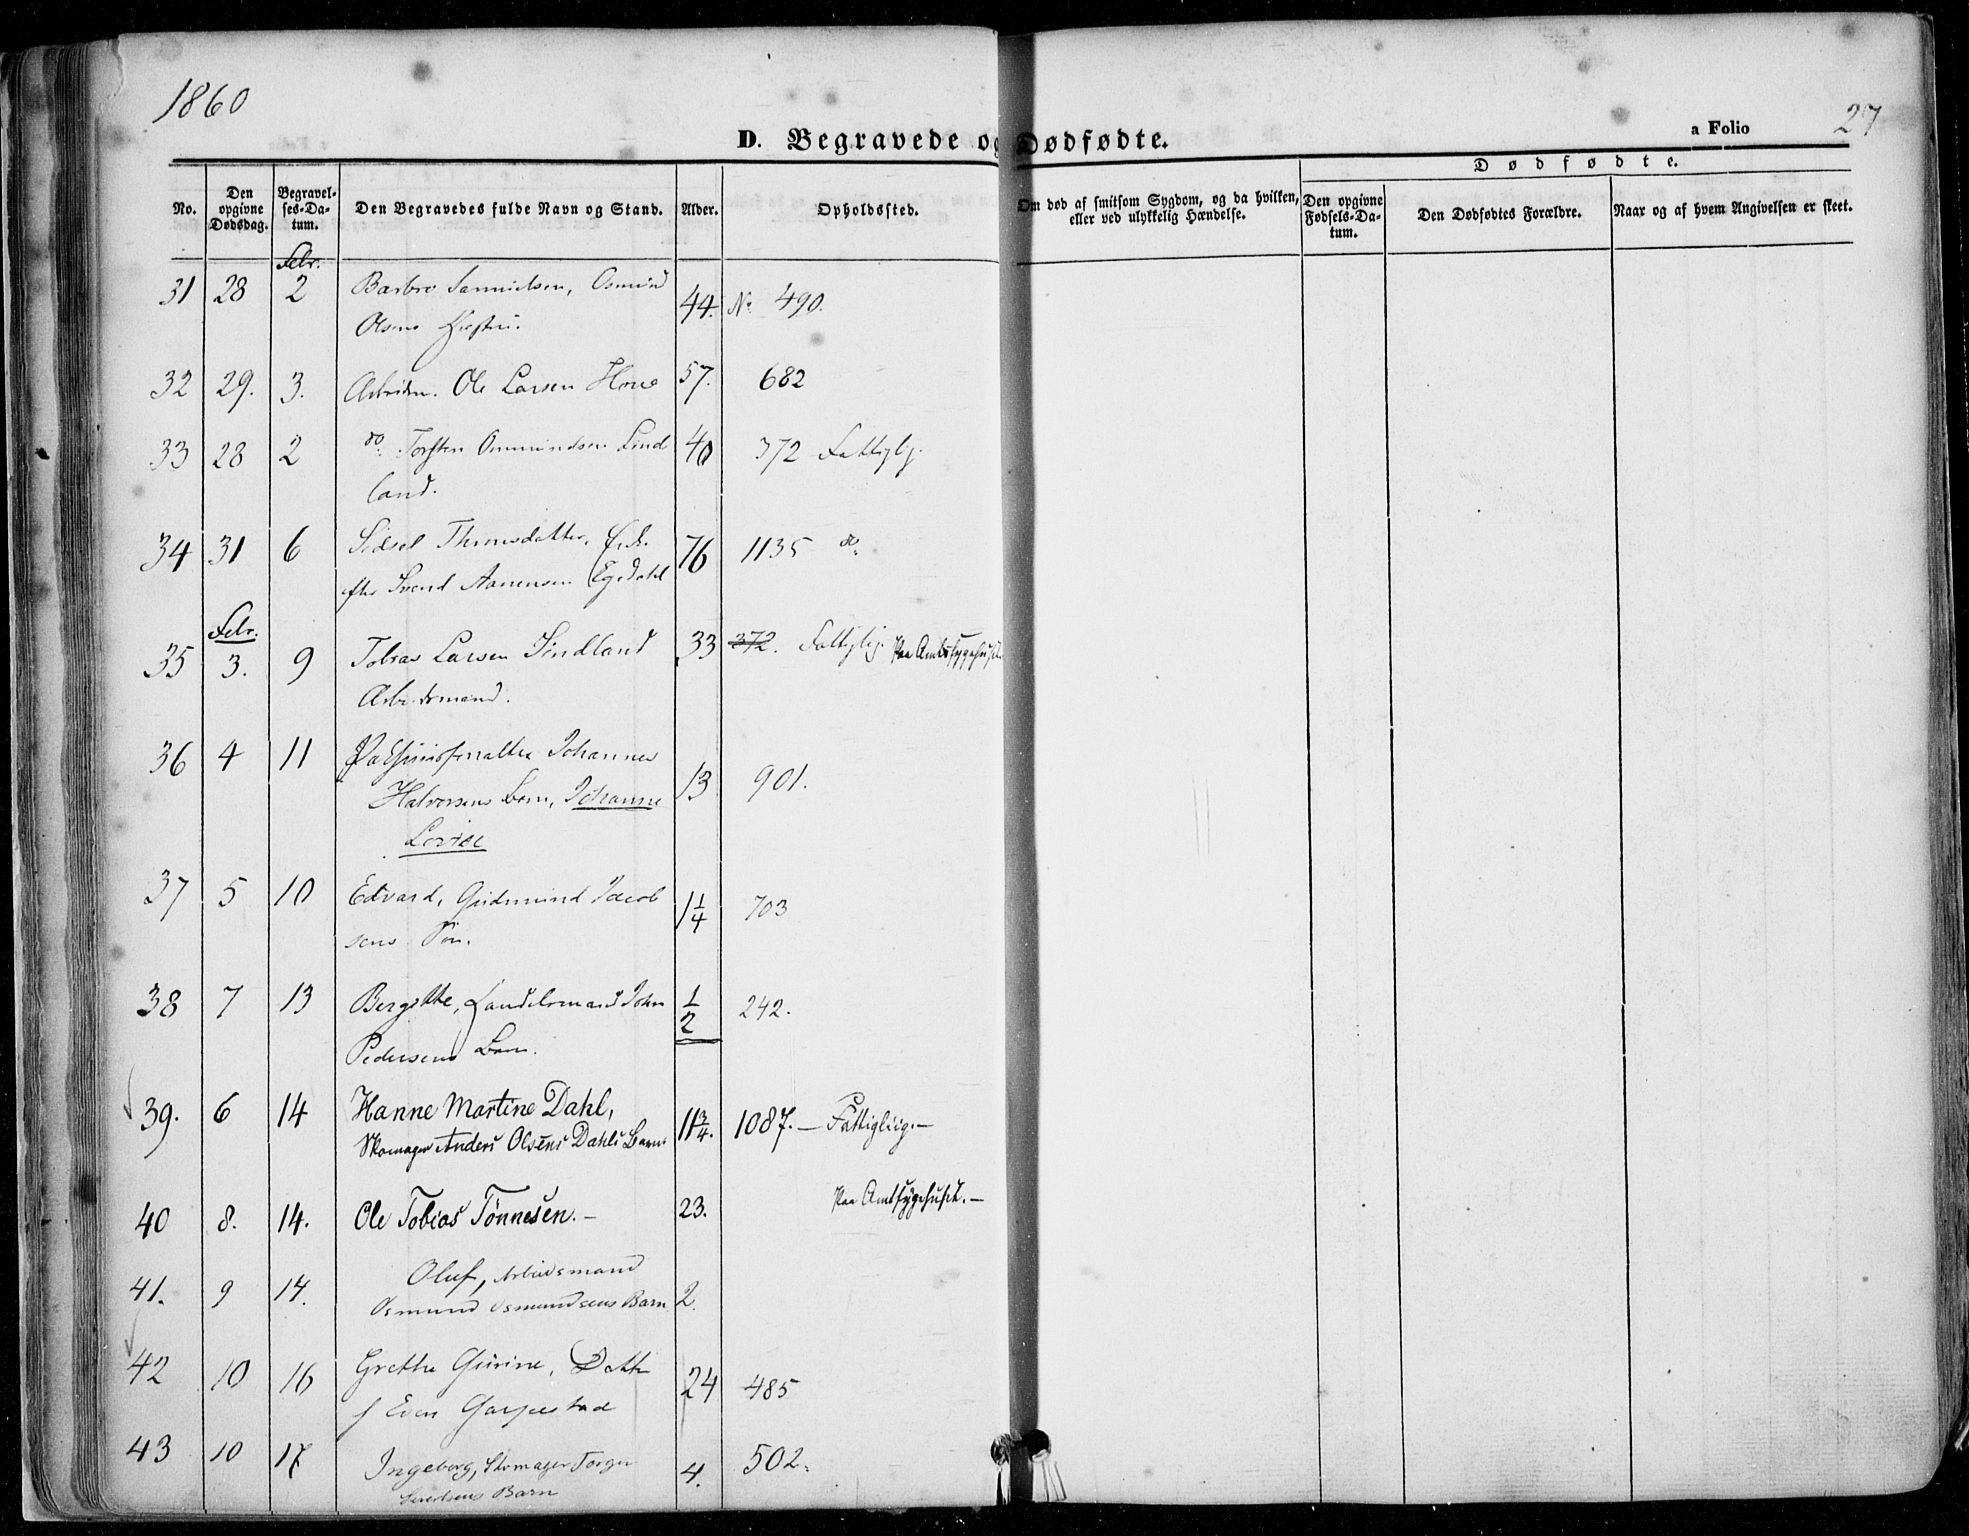 1860
27
a Folio
D. Begravede og Dødfødte.
Dødfødte.
No.
Den opgivne Dødsdag.
Begravelses-Datum.
Den Begravedes fulde Navn og Stand.
Alder.
Opholdssted.
Om død af smitsom Sygdom, og da hvilken, eller ved ulykkelig Hændelse.
Den opgivne Fødsels-Datum.
Den Dødfødtes Forældre.
Naar og af hvem Angivelsen er skeet.
Febr.
31 28 2 Barbro Samuelsen, Osmund 44. No 490.
Olsens Hustru.
32 29. 3. Ole Larsen Hove 57. 682
33 28 2 do Torsten Ommundsen Lind 40 372 Fattiglj.
land.
34 31 6 Sidsel Thronsdatter, Enke 76 1135 do
efter Svend Aanensen Egedahl
Febr.
35 3. 9 Tobias Larsen 33 372. Fattiglj. Paa Amtssygehuset.
Arbeidsmand.
36 4 11 Johannes 13 901.
Halvorsens Barn, Johanne
Lovise
37 5 10 Edvard, Gudmund Jacob 1 1/4 703
sens Søn.
38 7 13 Bergitte, Handelsmand John 1/2 242.
Pedersens Barn.
39. 6 14 Hanne Martine Dahl, 11 3/4. 1087. — Fattigliig. —
Skomager Anders Olsens Dahls Barn.
40 8. 14. Ole Tobias Tønnesen. — 23. Paa Amtssygehuset. —
41. 9 14. Oluf, Arbeidsmand
Osmund Osmundsens Barn 2.
42 10 16 Grethe Gurine, Datt 24 485
f Even Garpestad
43 10 17 Ingeborg, Skomager Torger 4. 502.
Sivertsens Barn